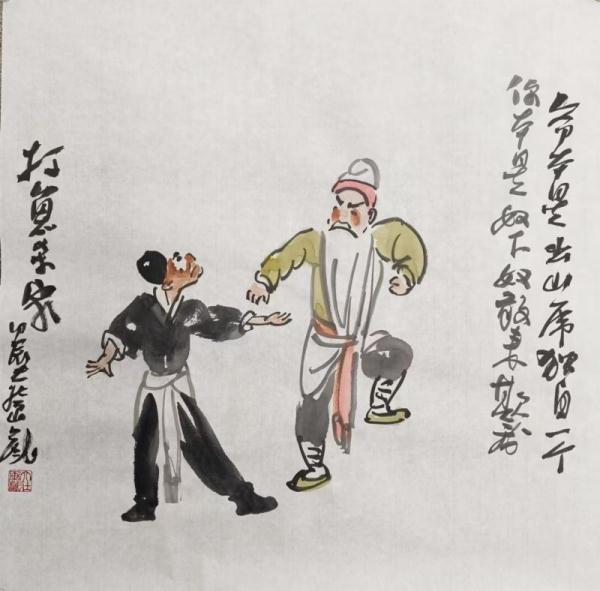 爷本是出山虎独自一个
你本是奴下奴敢来欺我
打魚杀家
甲辰